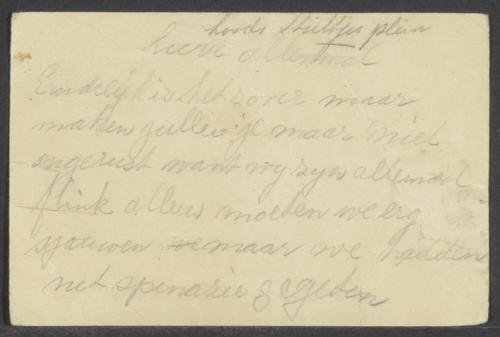 loods Stieltjes plein
Lieve allemaal
Eindelyk is het zover maar
maken jullie je maar niet
ongerust want wy zyn allemaal
flink alleen moeten we erg
sjouwen we maar we hadden
net spinazie gegeten